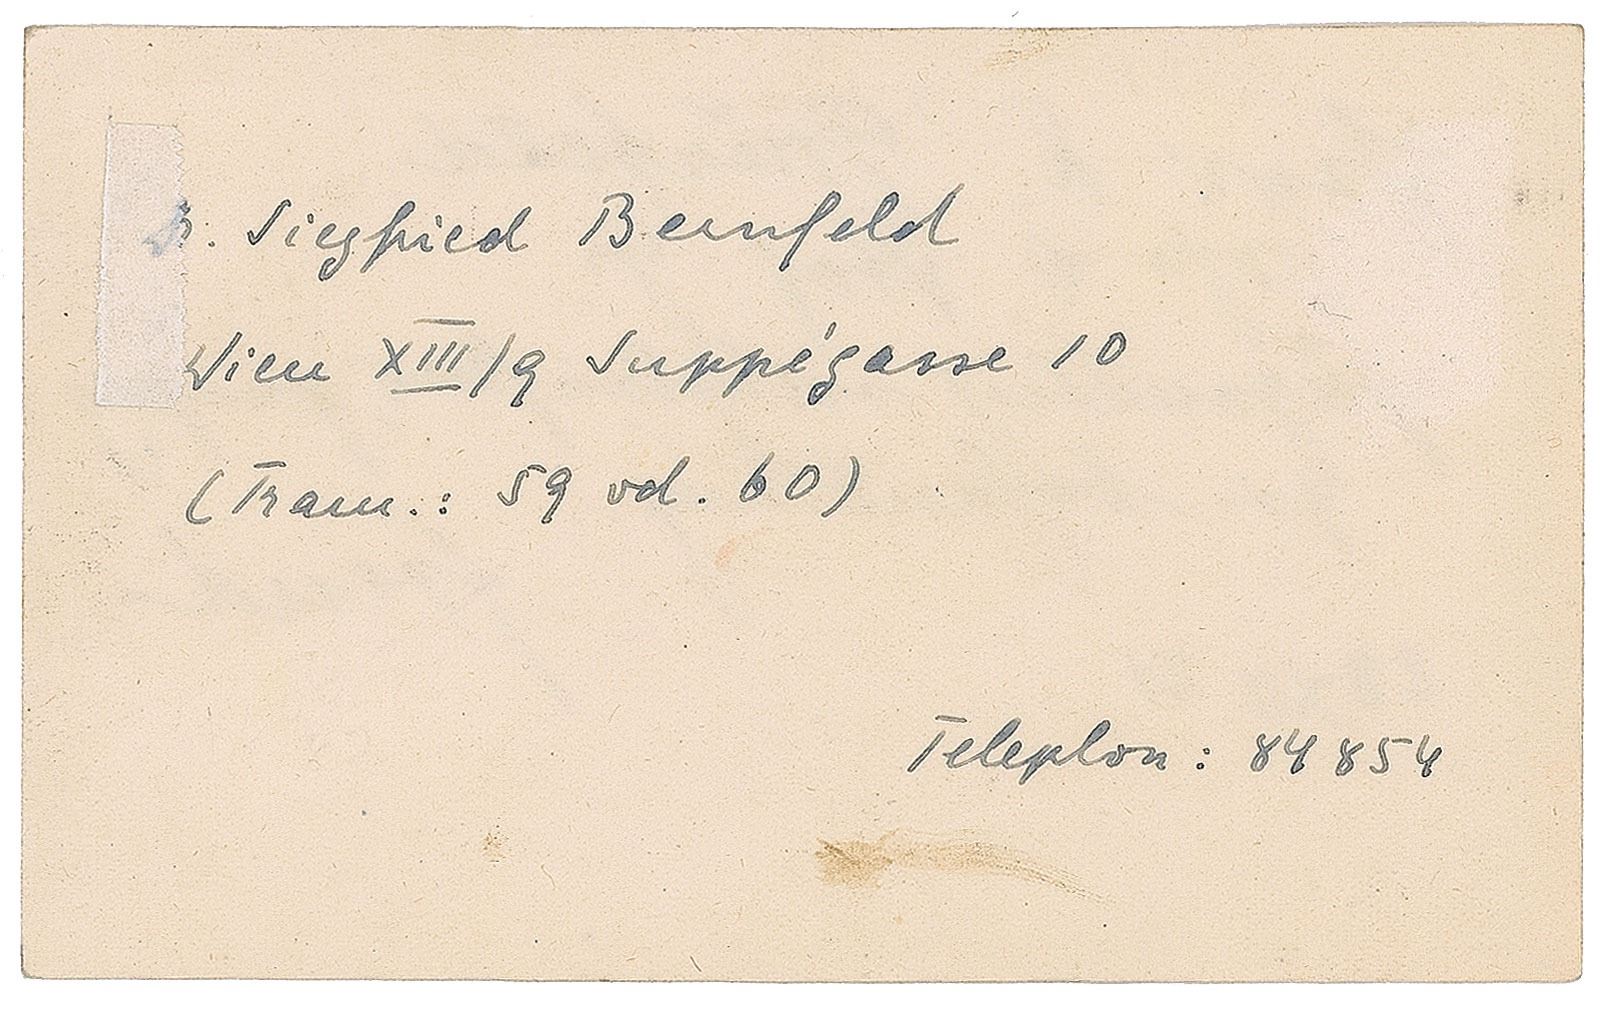 Dr. Siegfried Bernfeld
Wien XIII/9 Suppégasse 10
(Tram.: 59 od. 60)
Telephon: 84854